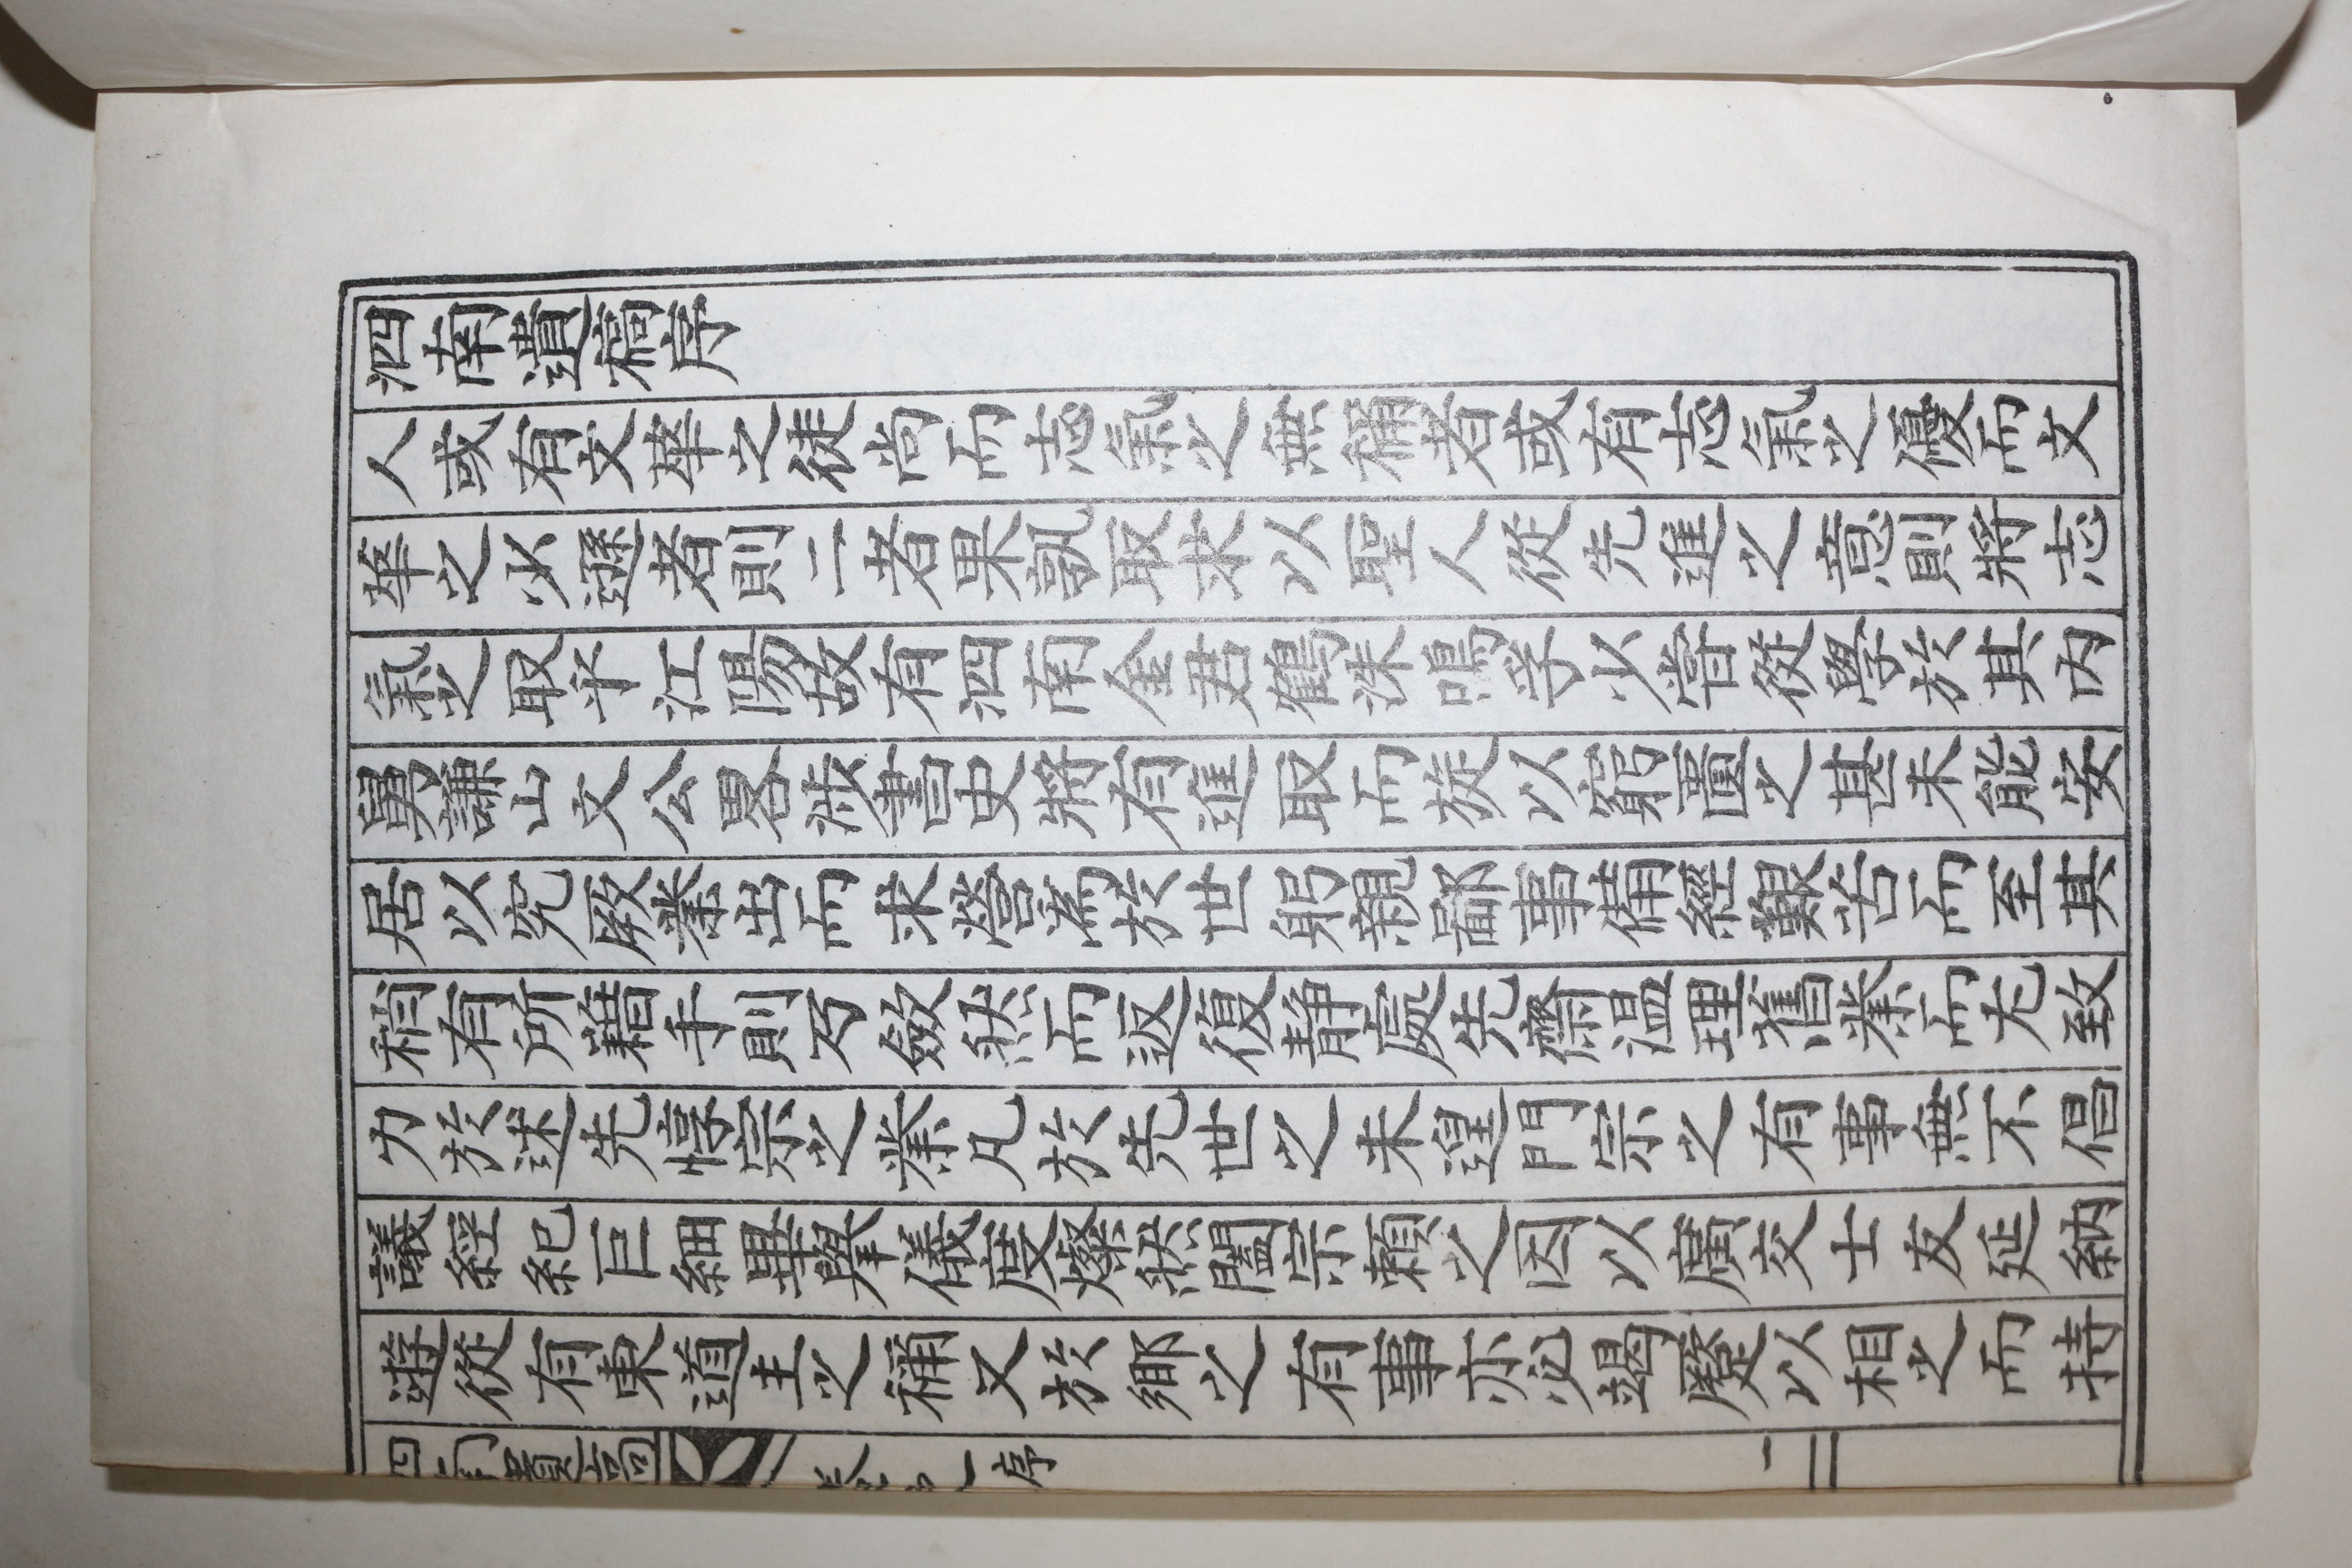 泗南遺稿序
人或有文華之徒尚而志氣之無稱者或有志氣之優而文
華之少遜者則二者果孰取求以聖人從先進之意則將志
氣之取乎江陽故有泗南金君鶴洙鳴學少嘗從學於其內
舅謙山文公畧涉書史將有進取而旋以窮匱之甚未能安
居以究厥業出而求營爲於世躬親鄙事備經艱苦而至其
稍有所藉手則乃斂然而返復靜處先齋溫理舊業而尤致
力於述先惇宗之業凡於先世之未遑門宗之有事無不倡
議經紀巨細畢擧儀度燦然闔宗賴之因以廣交士友延納
遊從有東道主之稱又於鄕之有事亦必竭蹷以相之而持
泗南遺稿 卷之一 序 一